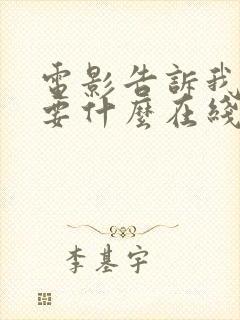 電影告訴我
要什麼在綫
李基宇